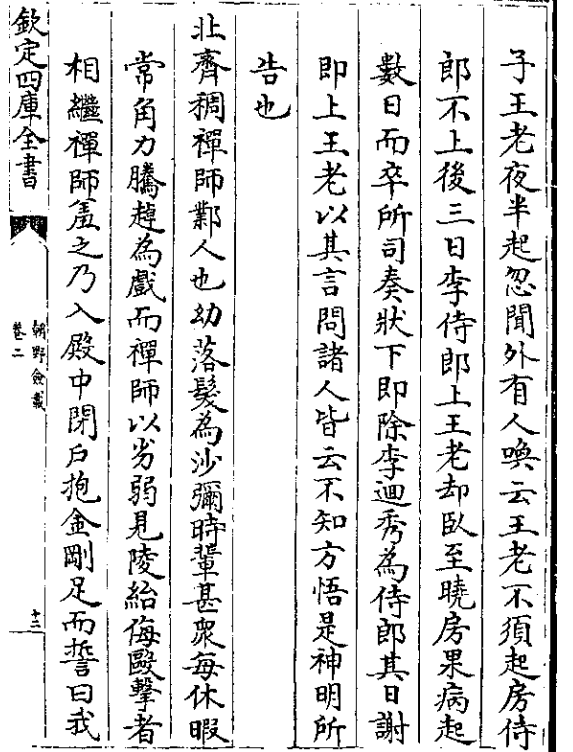 子王老夜半起忽聞外有人喚云王老不須起房侍
郎不上後三日李侍郎上王老却臥至曉房果病起
數日而卒所司奏狀下即除李迥秀為侍郎其日謝
即上王老以其言問諸人皆云不知方悟是神明所
告也
北齊稠禪師鄴人也幼落髮為沙彌時輩甚衆每休暇
常角力騰趠為戲而禪師以劣弱見陵紿侮毆擊者
相繼禪師羞之乃入殿中閉戶抱金剛足而誓曰我
欽定四庫全書
朝野僉載
卷二
十三